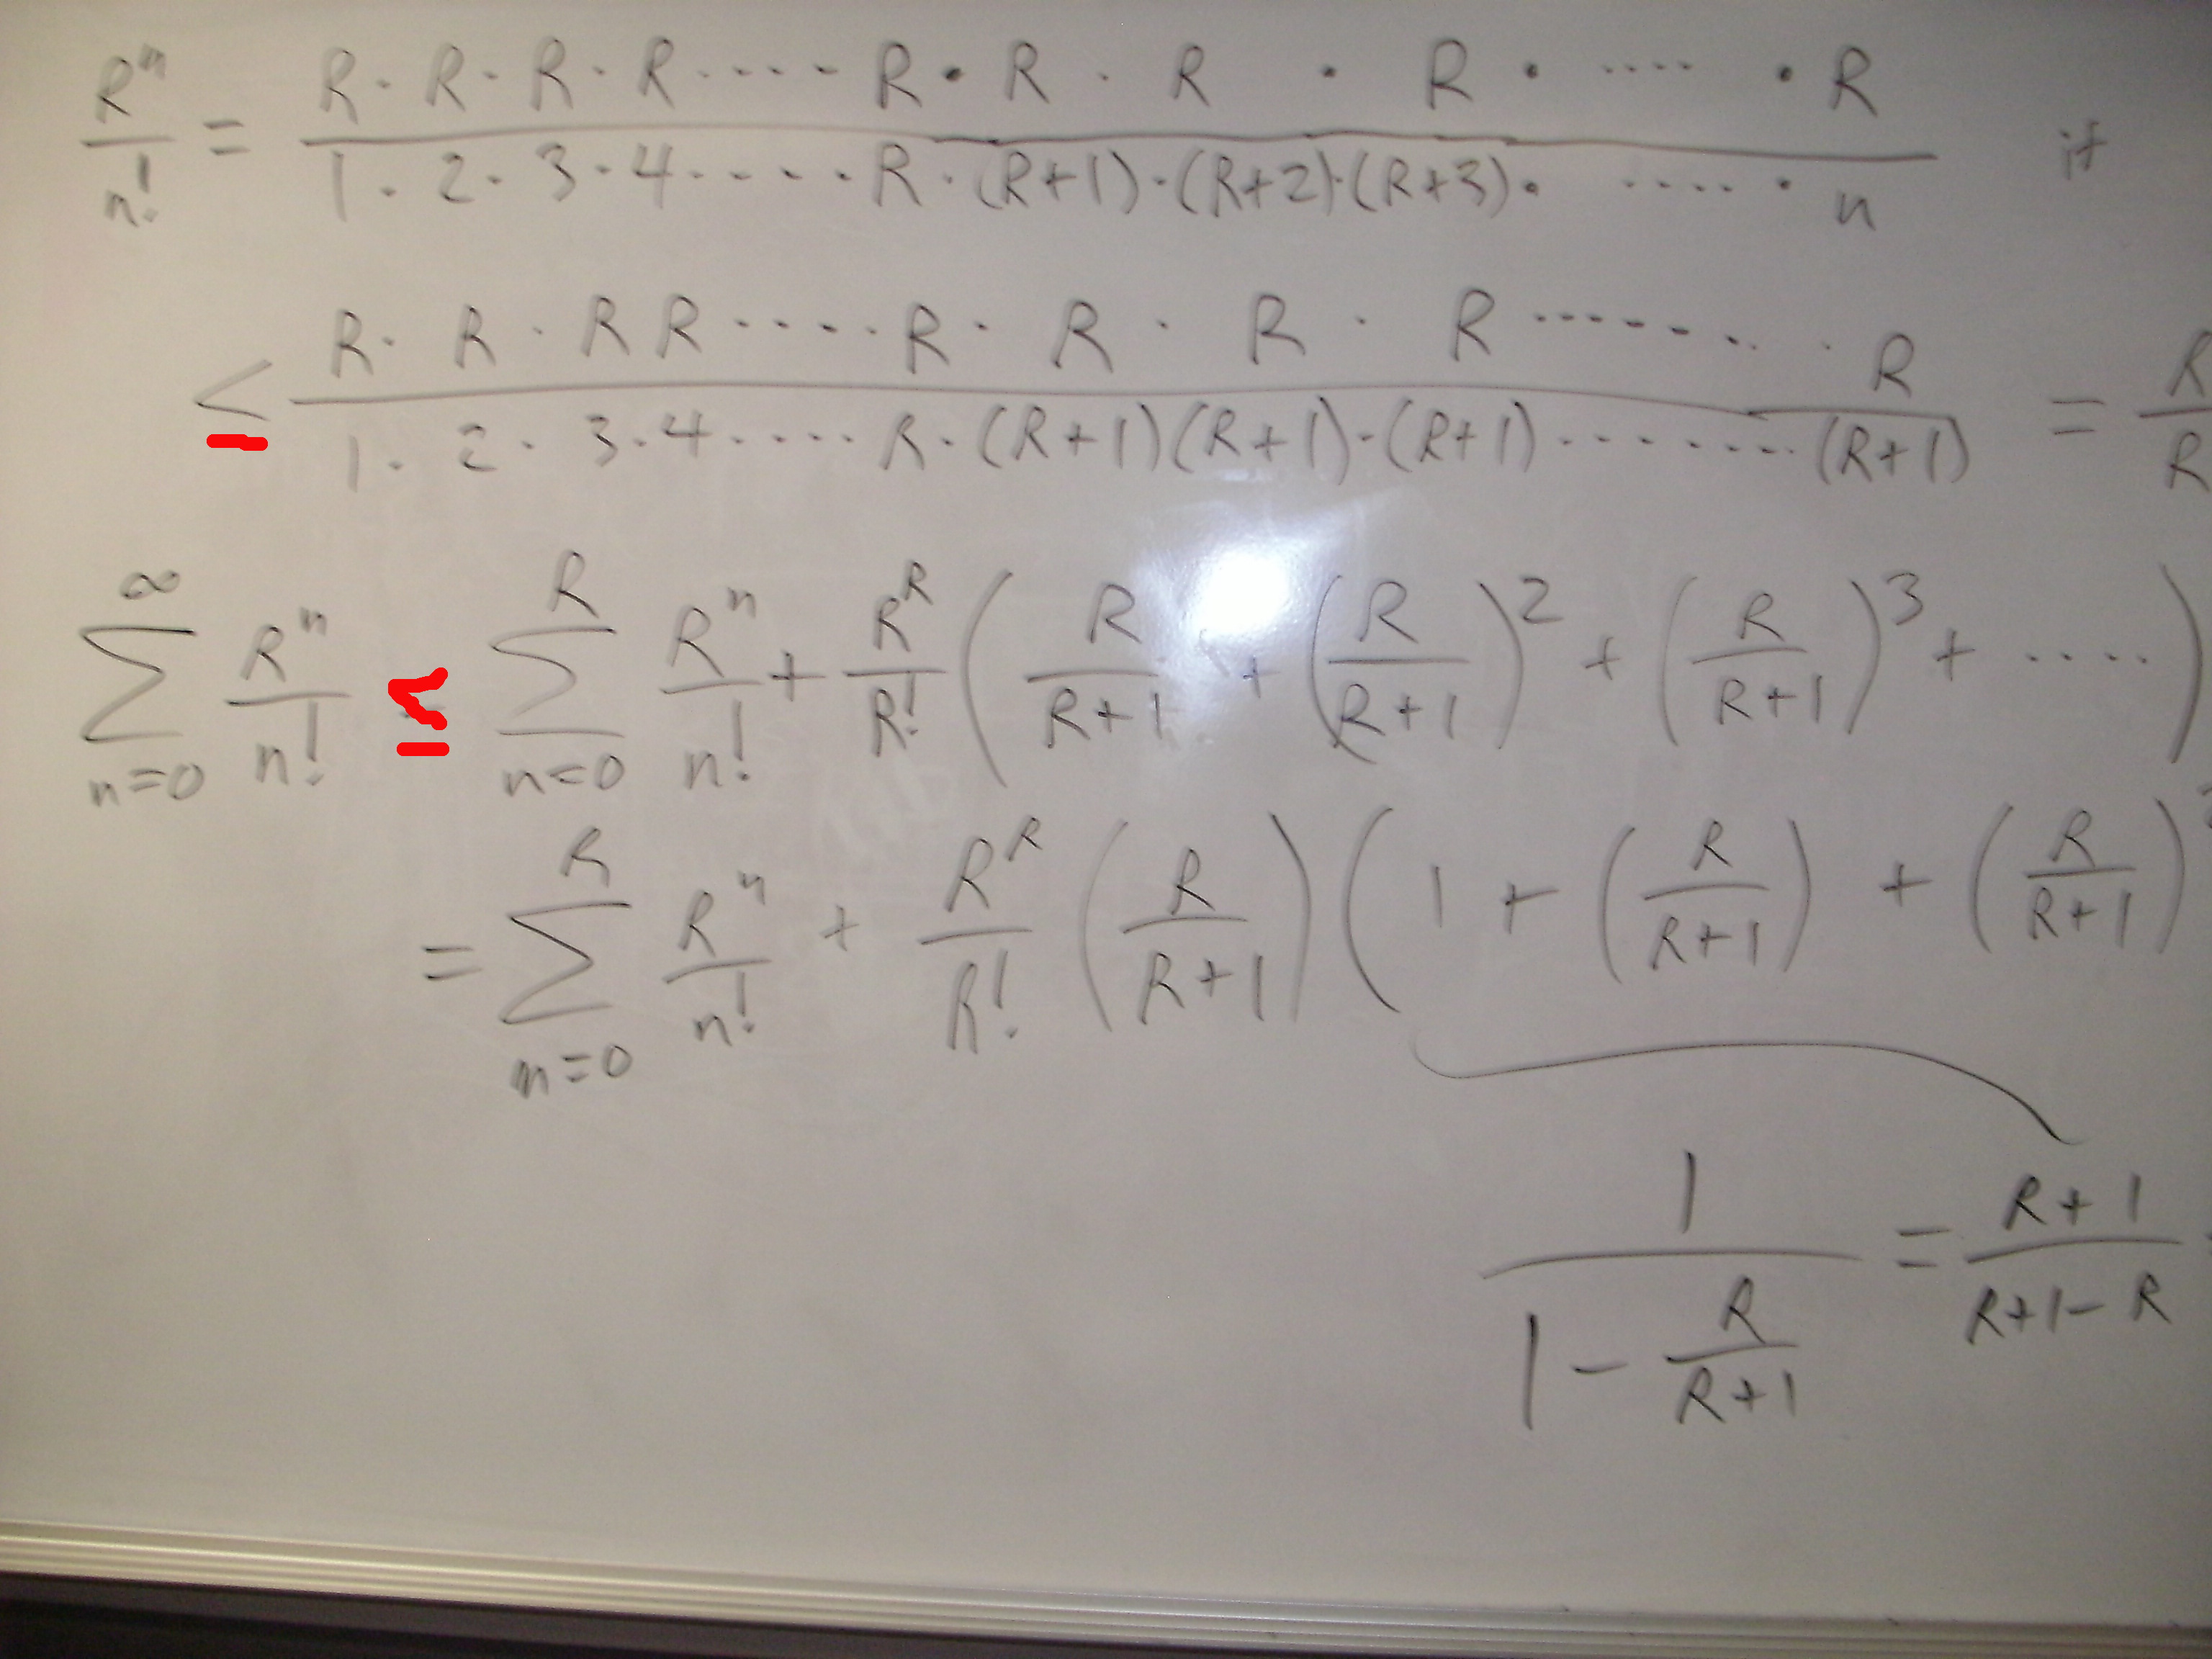 R^n/n! = (R · R · R · R ···· R · R · R · R · ···· · R)/(1 · 2 · 3 · 4 ····· R · (R+1) · (R+2) · (R+3) · ···· · n) if
≤ (R · R · R R ····· R · R · R · R ········ R)/(1 · 2 · 3 · 4 ····· R · (R+1)(R+1) · (R+1) ········ (R+1)) = R/R
∞∑n=0 R^n/n! ≤ R∑n=0 R^n/n! + R^R/R! (R/(R+1) + (R/(R+1))^2 + (R/(R+1))^3 + ····)
= R∑n=0 R^n/n! + R^R/R! (R/(R+1)) (1 + (R/(R+1)) + (R/(R+1))^2
1/(1 - R/(R+1)) = (R+1)/(R+1-R)